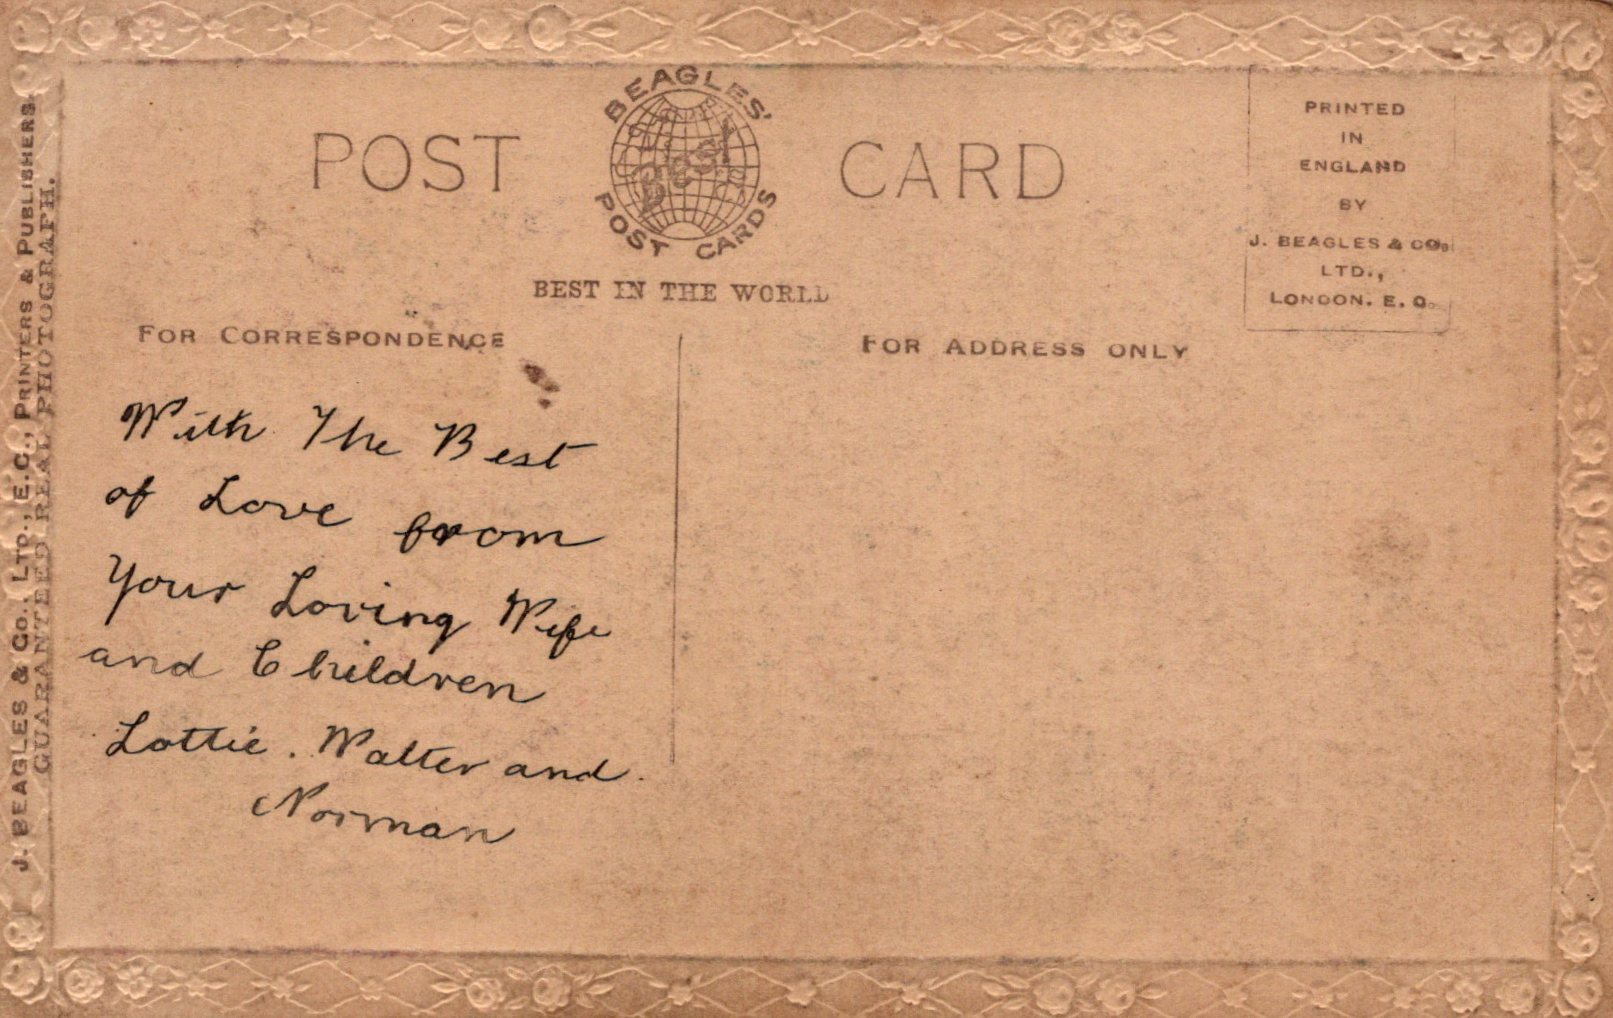 POST CARD
BEAGLES'
Best
POST CARDS
BEST IN THE WORLD
PRINTED
IN
ENGLAND
BY
J. BEAGLES & CO.,
LTD.,
LONDON. E. C.
FOR CORRESPONDENCE
FOR ADDRESS ONLY
With The Best
of Love from
Your Loving Wife
and Children
Lottie. Walter and.
Norman
J. BEAGLES & Co., LTD., E.C., PRINTERS & PUBLISHERS.
GUARANTEED REAL PHOTOGRAPH.